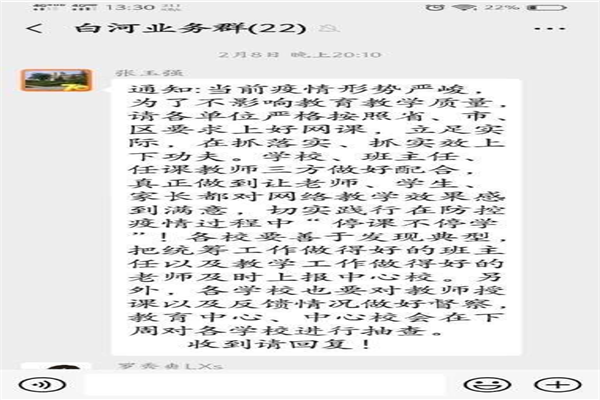 13:30
22%
白河业务群(22)
2月8日 晚上20:10
张玉强
通知:当前疫情形势严峻，
为了不影响教育教学质量，
请各单位严格按照省、市、
区要求上好网课，立足实
际，在抓落实、抓实效上
下功夫。学校、班主任、
任课教师三方做好配合，
真正做到让老师、学生、
家长都对网络教学效果感
到满意，切实践行在防控
疫情过程中“停课不停学
”！各校要善于发现典型，
把统筹工作做得好的班主
任以及教学工作做得好的
老师及时上报中心校。另
外，各学校也要对教师授
课以及反馈情况做好督察，
教育中心、中心校会在下
周对各学校进行抽查。
收到请回复！